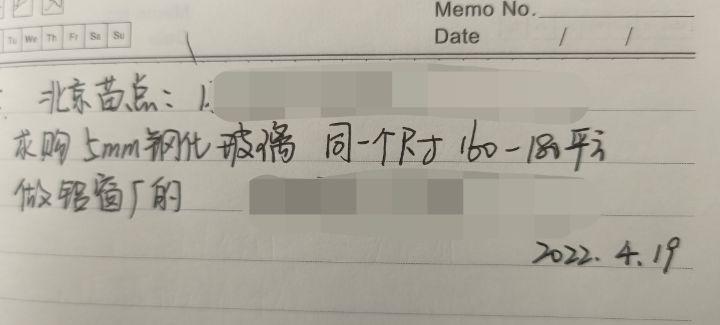 Memo No.
Tu We Th Fr Sa Su
Date / /
北京苗点: 1.
求购 5mm钢化玻璃 同一个尺寸 160-180平方
做铝窗厂的
2022.4.19